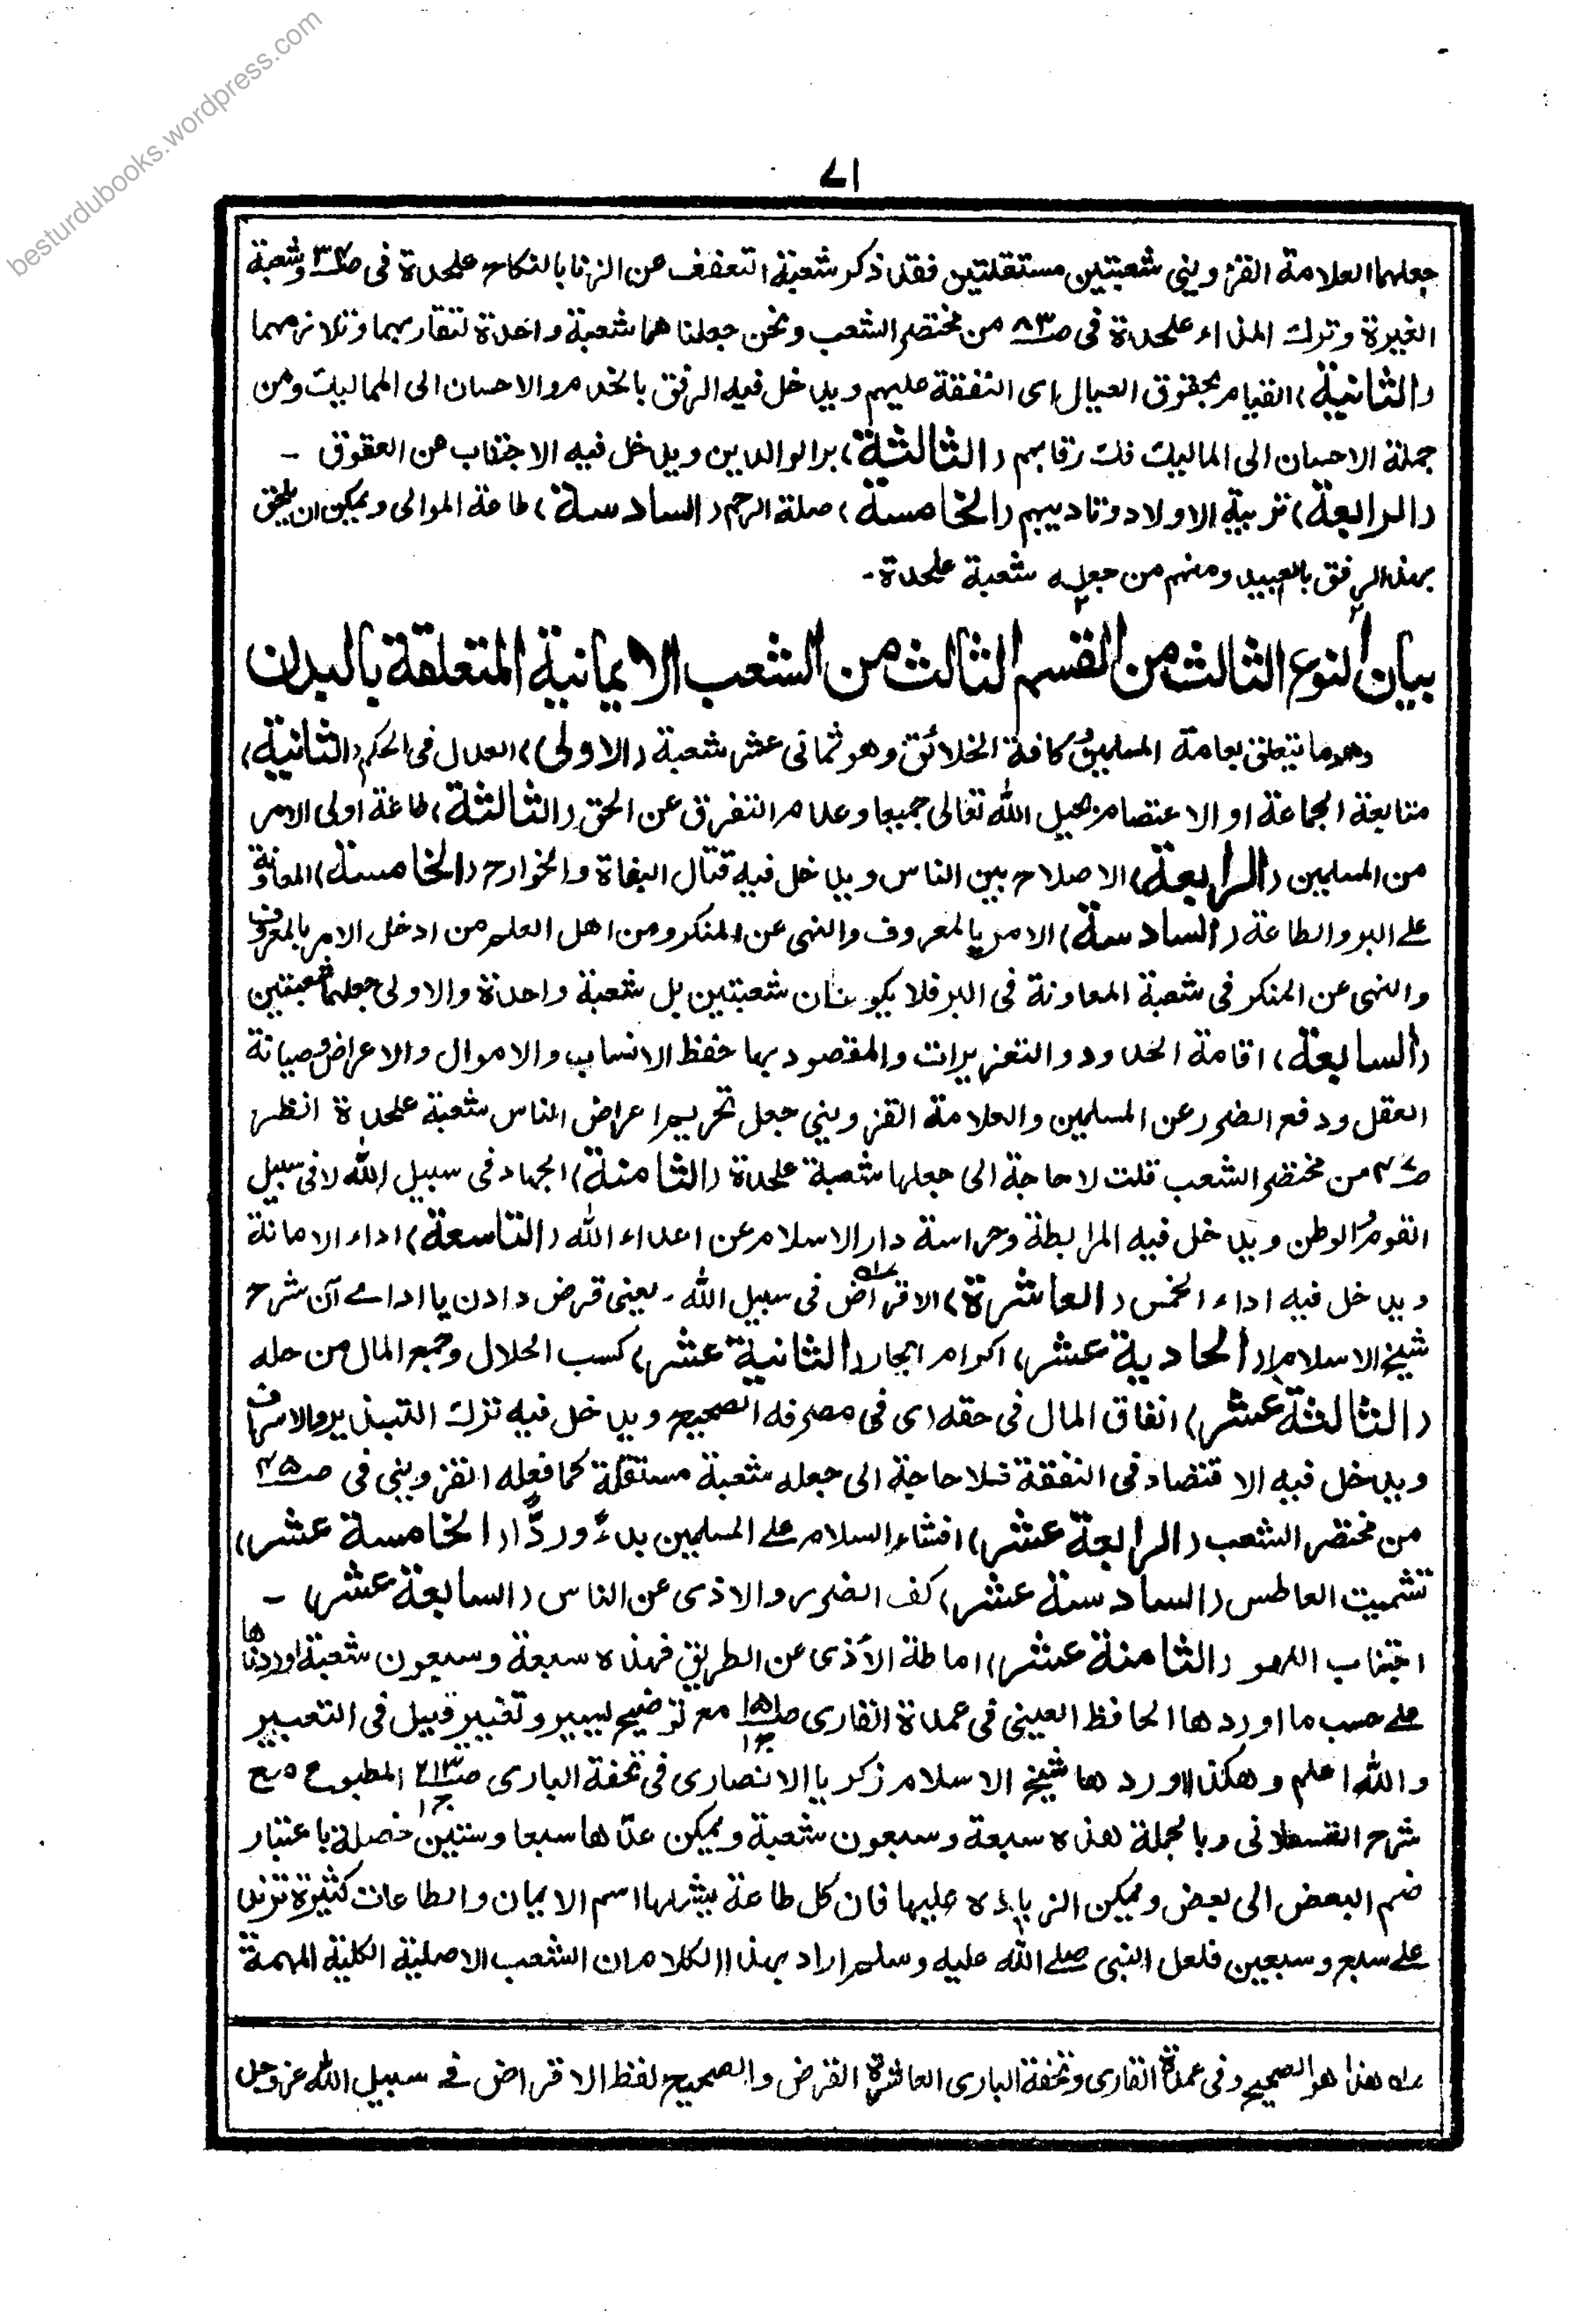 besturdubooks.wordpress.com
۷۱
جعلهما العلامة القزوينى شعبتين مستقلتين فقد ذكر شعبة التعفف عن الزنا بالنكاح علحدة فى وشعبة
الغيرة وترك المذاء علحدة فى صـ۸۳ من مختصر الشعب ونحن جعلنا هما شعبة واحدة لتقاربهما وتلازمهما
(الثانية) القيام بحقوق العيال اى النفقة عليهم ويدخل فيه الرفق بالخدم والاحسان الى المماليك ومن
جملة الاحسان الى الماليك فك رقابهم (الثالثة) بر الوالدين ويدخل فيه الاجتناب عن العقوق -
(الرابعة) تربية الاولاد وتاديبهم (الخامسة) صلة الرحم (السادسة) طاعة الموالى ويمكن ان يلحق
بهذا الرفق بالعبيد ومنهم من جعله شعبة علحدة -
بيان النوع الثالث من القسم الثالث من الشعب الايمانية المتعلقة بالبدن
وهو ما يتعلق بعامة المسلمين وكافة الخلائق وهو ثمانى عشر شعبة (الاولى) العدل فى الحكم (الثانية)
متابعة الجماعة او الاعتصام بحبل الله تعالى جميعا وعدم التفرق عن الحق (الثالثة) طاعة اولى الامر
من المسلمين (الرابعة) الاصلاح بين الناس ويدخل فيه قتال البغاة والخوارج (الخامسة) المعاونة
على البر والطاعة (السادسة) الامر بالمعروف والنهى عن المنكر ومن اهل العلم من ادخل الامر بالمعروف
والنهى عن المنكر فى شعبة المعاونة فى البر فلا يكونان شعبتين بل شعبة واحدة والاولى جعلهما شعبتين
(السابعة) اقامة الحدود والتعزيرات والمقصود بها حفظ الانساب والاموال والاعراض وصيانة
العقل ودفع الضرر عن المسلمين والعلامة القزوينى جعل تحريم اعراض الناس شعبة علحدة انظر
من مختصر الشعب قلت لا حاجة الى جعلها شعبة علحدة (الثامنة) الجهاد فى سبيل الله لا فى سبيل
القوم والوطن ويدخل فيه المرابطة وحراسة دار الاسلام عن اعداء الله (التاسعة) اداء الامانة
ويدخل فيه اداء الخمس (العاشرة) الاقراض له فى سبيل الله - يعنى قرض دادن يا اداے آن شرح
شيخ الاسلام (الحادية عشر) اكرام الجار (الثانية عشر) كسب الحلال وجمع المال من حله
(الثالثة عشر) انفاق المال فى حقه اى فى مصرفه الصحيح ويدخل فيه ترك التبذير والاسراف
ويدخل فيه الاقتصاد فى النفقة فلا حاجة الى جعله شعبة مستقلة كما فعله القزوينى فى صـ۴۵
من مختصر الشعب (الرابعة عشر) افشاء السلام على المسلمين بدءً وردًّا (الخامسة عشر)
تشميت العاطس (السادسة عشر) كف الضرر والاذى عن الناس (السابعة عشر) -
اجتناب اللهو (الثامنة عشر) اماطة الأذى عن الطريق فهذه سبعة وسبعون شعبة اوردناها
على حسب ما اوردها الحافظ العينى فى عمدة القارى صـ۱۵۱ ج۱ مع توضيح يسير وتغيير قبيل فى التعبير
والله اعلم وهكذا اوردها شيخ الاسلام زكريا الانصارى فى تحفة البارى صـ۲۱۳ ج۱ المطبوع مع
شرح القسطلانى وبالجملة هذه سبعة وسبعون شعبة ويمكن عدّها سبعا وستين خصلة باعتبار
ضم البعض الى بعض ويمكن الزيادة عليها فان كل طاعة يشملها اسم الايمان والطاعات كثيرة تزيد
على سبع وسبعين فلعل النبى صلے الله عليه وسلم اراد بهذا الكلام ان الشعب الاصلية الكلية المهمة
له هذا هو الصحيح وفى عمدة القارى وتحفة البارى العاشرة القرض والصحيح لفظ الاقراض فے سبيل الله عز وجل